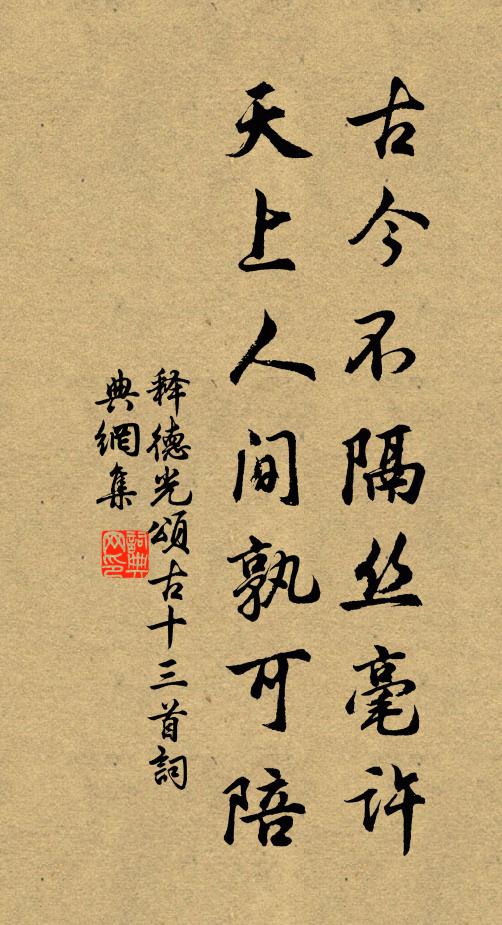 古今不隔丝毫许
天上人间孰可陪
释德光颂古十三首詞
典網集
詞典
网印